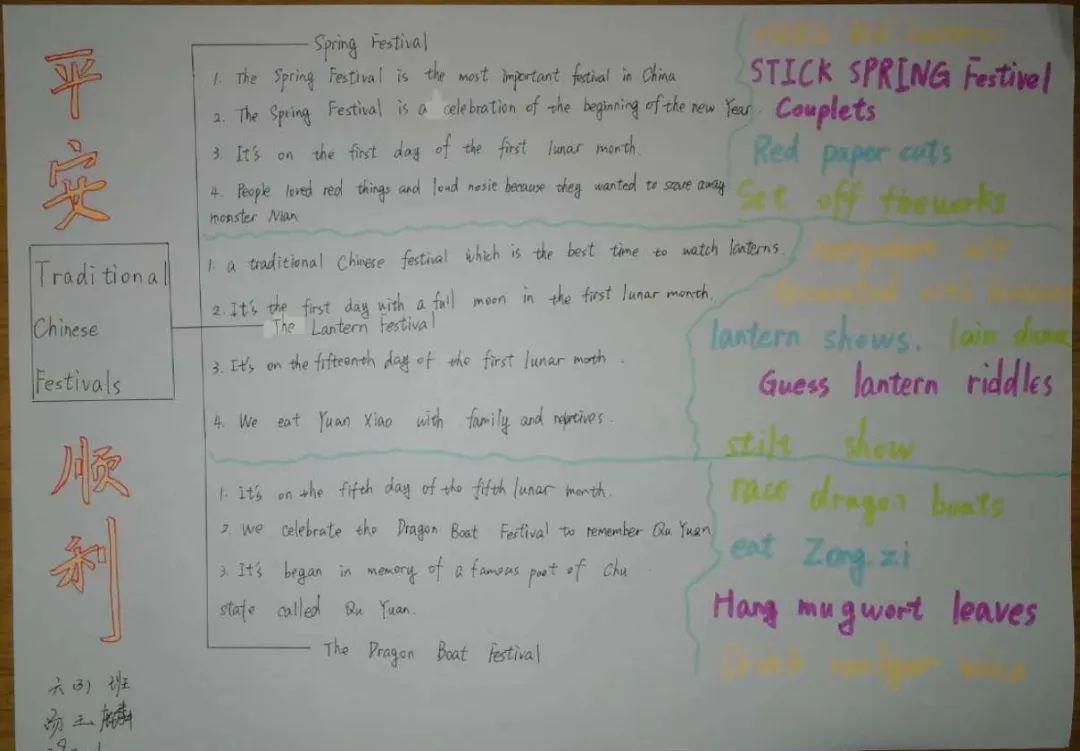 平
安
Traditional
Chinese
Festivals
顺
利
六(3)班
Spring Festival
1. The Spring Festival is the most important festival in China
2. The Spring Festival is a celebration of the beginning of the new Year.
3. It's on the first day of the first lunar month.
4. People loved red things and loud nosie because they wanted to scare away
monster Nian
STICK SPRING Festivel
Couplets
Red paper cuts
Set off fireworks
1. a traditional Chinese festival which is the best time to watch lanterns.
2. It's the first day with a full moon in the first lunar month.
The Lantern Festival
3. It's on the fifteenth day of the first lunar moth.
4. We eat Yuan Xiao with family and
lantern shows.
Guess lantern riddles
stilt show
1. It's on the fifth day of the fifth lunar month.
2. We celebrate the Dragon Boat Festival to remember Qu Yuan
3. It's began in memory of a famous poet of Chu
state called Qu Yuan.
The Dragon Boat Festival
race dragon boats
eat Zong zi
Hang mugwort leaves
Drink wine